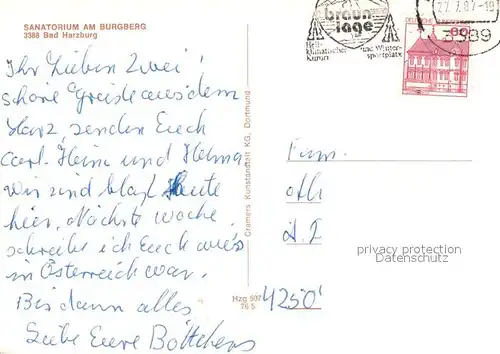 SANATORIUM AM BURGBERG
3388 Bad Harzburg
Ihr Lieben Zwei!
schöne Grüße aus dem
Harz, senden Euch
Carl-Heinz und Helma
wir sind bloß heute
hier. Nächste Woche
schreibe ich Euch wie's
in Österreich war.
Bis dann alles
Liebe Eure Böttchers
Cramers Kunstanstalt KG, Dortmund
Hzg 597
76 5
braun
lage
Heil-
klimatischer
Kurort
und Winter-
sportplatz
27.7.87-10
3389
80
Fam.
4250
privacy protection
Datenschutz